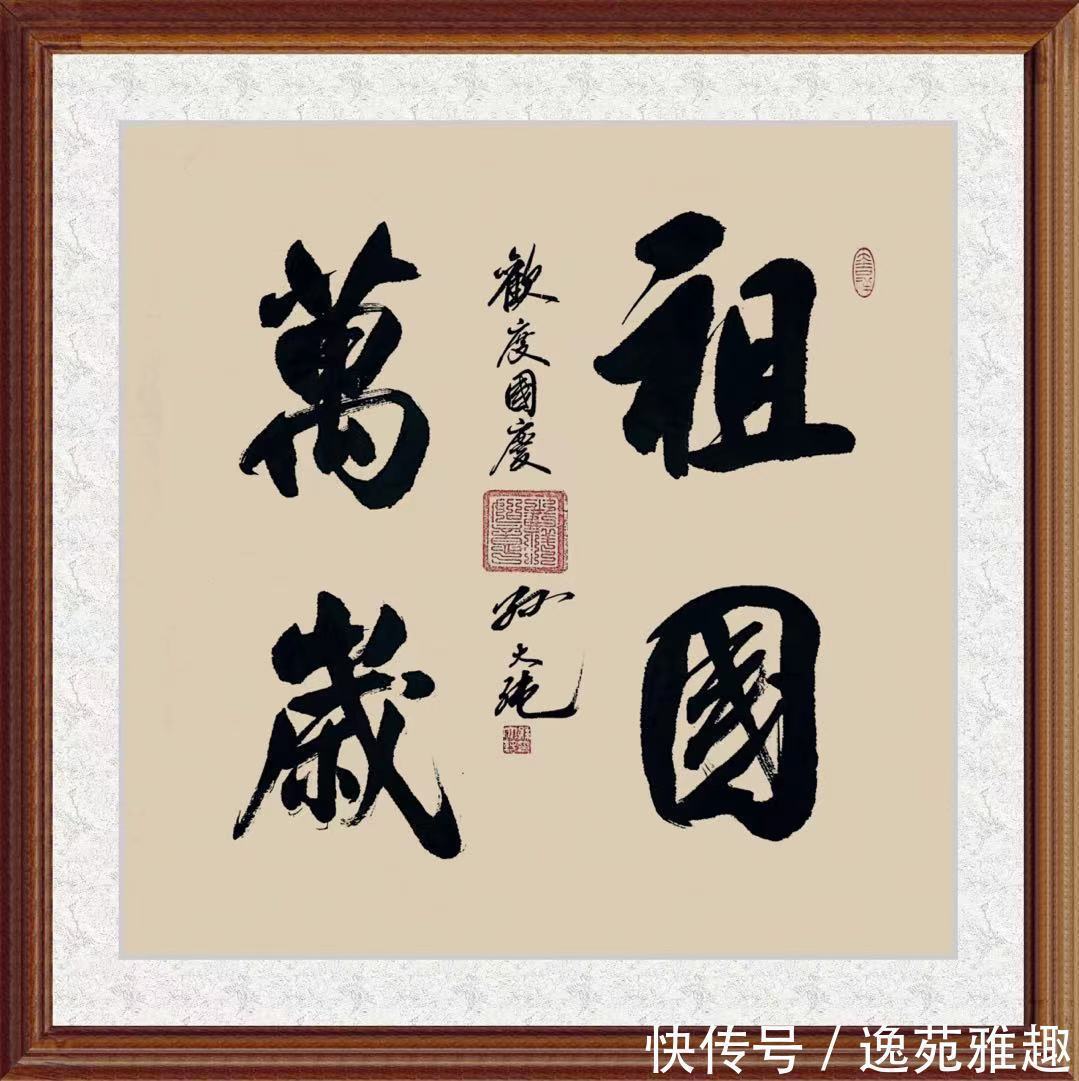 祖國
萬歲
歡度國慶
孫大統
快传号 / 逸苑雅趣